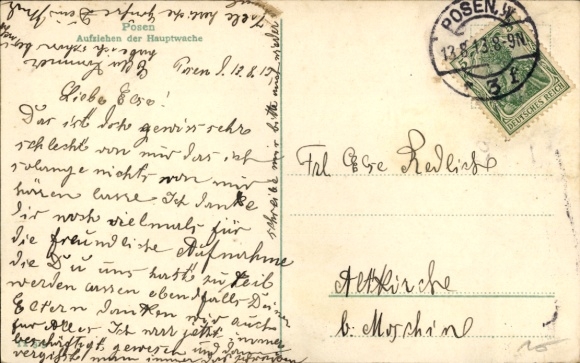 Posen
Aufziehen der Hauptwache
Posen, d. 12.8.13
Liebe Else!
Das ist doch gewiss sehr
schlecht von mir das ich
solange nichts von mir
hören lasse. Ich danke
Dir noch vielmals für
die freundliche Aufnahme
die Du uns hast zu Teil
werden lassen ebenfalls Deinen
Eltern danken wir auch
für Alles. Ich war jetzt immer
beschäftigt gewesen und
vergisst man immer das
schreibe mir bitte mal wieder
POSEN
13.8.13.8-9N.
DEUTSCHES REICH
Frl Else Redlich
Altkirche
b. Moschin